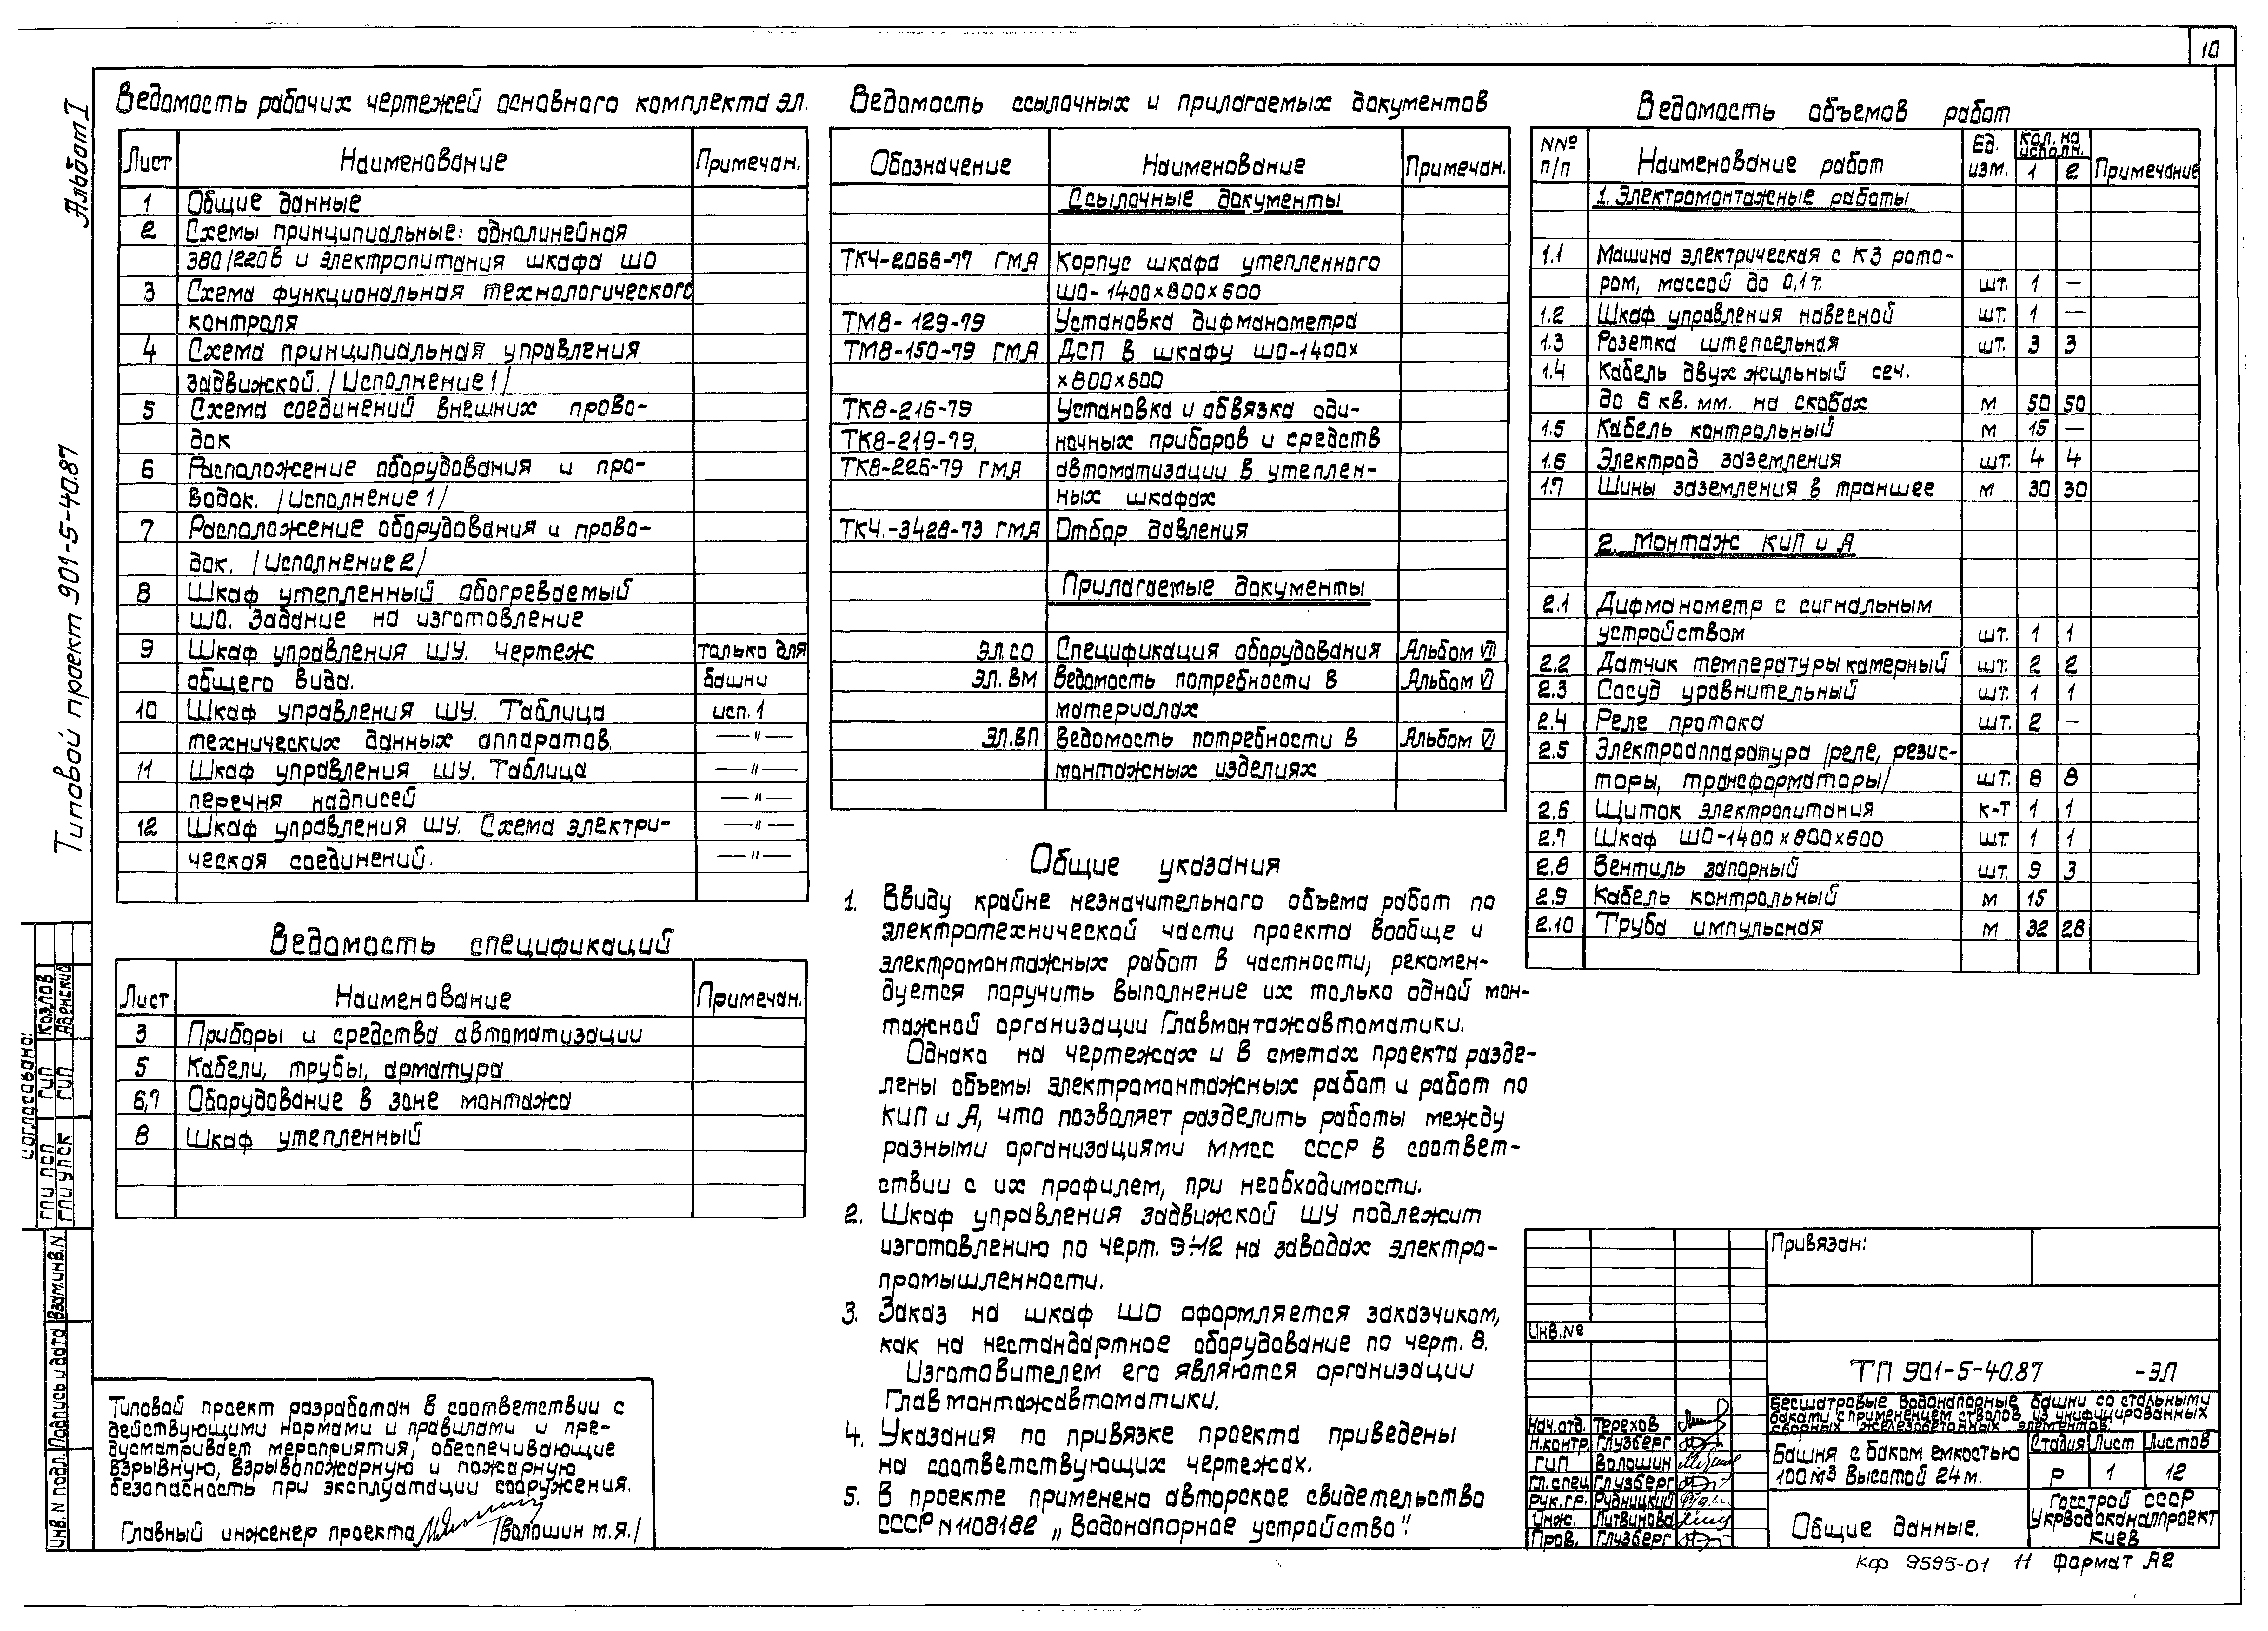 10
Альбом I
Типовой проект 901-5-40.87
Ведомость рабочих чертежей основного комплекта ЭЛ.
Лист Наименование Примечан.
1 Общие данные
2 Схемы принципиальные: однолинейная
380/220В и электропитания шкафа ШО
3 Схема функциональная технологического
контроля
4 Схема принципиальная управления
задвижкой. /Исполнение 1/
5 Схема соединений внешних прово-
док
6 Расположение оборудования и про-
водок. /Исполнение 1/
7 Расположение оборудования и прово-
док. /Исполнение 2/
8 Шкаф утепленный обогреваемый
ШО. Задание на изготовление
9 Шкаф управления ШУ. Чертеж только для
общего вида. башни
10 Шкаф управления ШУ. Таблица исп. 1
технических данных аппаратов. —"—
11 Шкаф управления ШУ. Таблица —"—
перечня надписей —"—
12 Шкаф управления ШУ. Схема электри- —"—
ческая соединений. —"—
Ведомость спецификаций
Лист Наименование Примечан.
3 Приборы и средства автоматизации
5 Кабели, трубы, арматура
6,7 Оборудование в зоне монтажа
8 Шкаф утепленный
Типовой проект разработан в соответствии с
действующими нормами и правилами и пре-
дусматривает мероприятия, обеспечивающие
взрывную, взрывопожарную и пожарную
безопасность при эксплуатации сооружения.
Главный инженер проекта /Волошин М.Я./
Ведомость ссылочных и прилагаемых документов
Обозначение Наименование Примечан.
Ссылочные документы
ТК4-2066-77 ГМА Корпус шкафа утепленного
ШО-1400×800×600
ТМ8-129-79 Установка дифманометра
ТМ8-150-79 ГМА ДСП в шкафу ШО-1400×
×800×600
ТК8-216-79 Установка и обвязка оди-
ТК8-219-79, ночных приборов и средств
ТК8-226-79 ГМА автоматизации в утеплен-
ных шкафах
ТК4.-3428-73 ГМА Отбор давления
Прилагаемые документы
ЭЛ.СО Спецификация оборудования Альбом VII
ЭЛ.ВМ Ведомость потребности в Альбом VI
материалах
ЭЛ.ВП Ведомость потребности в Альбом VI
монтажных изделиях
Общие указания
1. Ввиду крайне незначительного объема работ по
электротехнической части проекта вообще и
электромонтажных работ в частности, рекомен-
дуется поручить выполнение их только одной мон-
тажной организации Главмонтажавтоматики.
Однако на чертежах и в сметах проекта разде-
лены объемы электромонтажных работ и работ по
КИП и А, что позволяет разделить работы между
разными организациями ММСС СССР в соответ-
ствии с их профилем, при необходимости.
2. Шкаф управления задвижкой ШУ подлежит
изготовлению по черт. 9÷12 на заводах электро-
промышленности.
3. Заказ на шкаф ШО оформляется заказчиком,
как на нестандартное оборудование по черт. 8.
Изготовителем его являются организации
Главмонтажавтоматики.
4. Указания по привязке проекта приведены
на соответствующих чертежах.
5. В проекте применено авторское свидетельство
СССР N 1108182 „Водонапорное устройство".
Ведомость объемов работ
NNº п/п Наименование работ Ед. изм. Кол. на исполн. 1 2 Примечание
1. Электромонтажные работы
1.1 Машина электрическая с КЗ рото-
ром, массой до 0,1т. шт. 1 —
1.2 Шкаф управления навесной шт. 1 —
1.3 Розетка штепсельная шт. 3 3
1.4 Кабель двухжильный сеч.
до 6 кв. мм. на скобах м 50 50
1.5 Кабель контрольный м 15 —
1.6 Электрод заземления шт. 4 4
1.7 Шины заземления в траншее м 30 30
2. Монтаж КИП и А
2.1 Дифманометр с сигнальным
устройством шт. 1 1
2.2 Датчик температуры камерный шт. 2 2
2.3 Сосуд уравнительный шт. 1 1
2.4 Реле протока шт. 2 —
2.5 Электроаппаратура /реле, резис-
торы, трансформаторы/ шт. 8 8
2.6 Щиток электропитания к-т 1 1
2.7 Шкаф ШО-1400×800×600 шт. 1 1
2.8 Вентиль запорный шт. 9 3
2.9 Кабель контрольный м 15
2.10 Труба импульсная м 32 28
Привязан:
Инв.№
ТП 901-5-40.87 -ЭЛ
Бесшатровые водонапорные башни со стальными
баками с применением стволов из унифицированных
сборных железобетонных элементов.
Нач.отд. Терехов
Н.контр. Глузберг
ГИП Волошин
Гл.спец. Глузберг
Рук.гр. Рудницкий
Инж. Литвинова
Пров. Глузберг
Башня с баком емкостью
100 м3 высотой 24 м.
Стадия Лист Листов
Р 1 12
Общие данные.
Госстрой СССР
Укрводоканалпроект
Киев
Кф 9595-01 11 Формат А2
Согласовано:
ГПИ ПСП ГИП Козлов
ГПИ УПСК ГИП
Инв. N подл. Подпись и дата Взам.инв.N